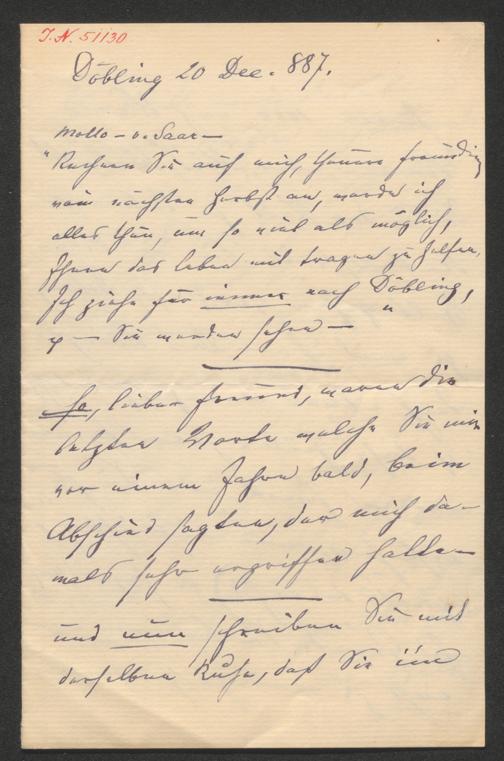 I.N. 51130
Döbling 20 Dec. 887.
Motto – v. Saar –
"Rechnen Sie auf mich, theuere Freundin,
vom nächsten Herbst an, werde ich
alles thun, um so viel als möglich,
Ihnen das Leben mit tragen zu helfen,
Ich ziehe für immer nach Döbling,
– Sie werden sehen – "
So, lieber Freund, waren die
letzten Worte welche Sie mir
vor einem Jahre bald, beim
Abschied sagten, der mich da-
mals sehr ergriffen hatte –
und nun schreiben Sie mit
derselben Ruhe, daß Sie im